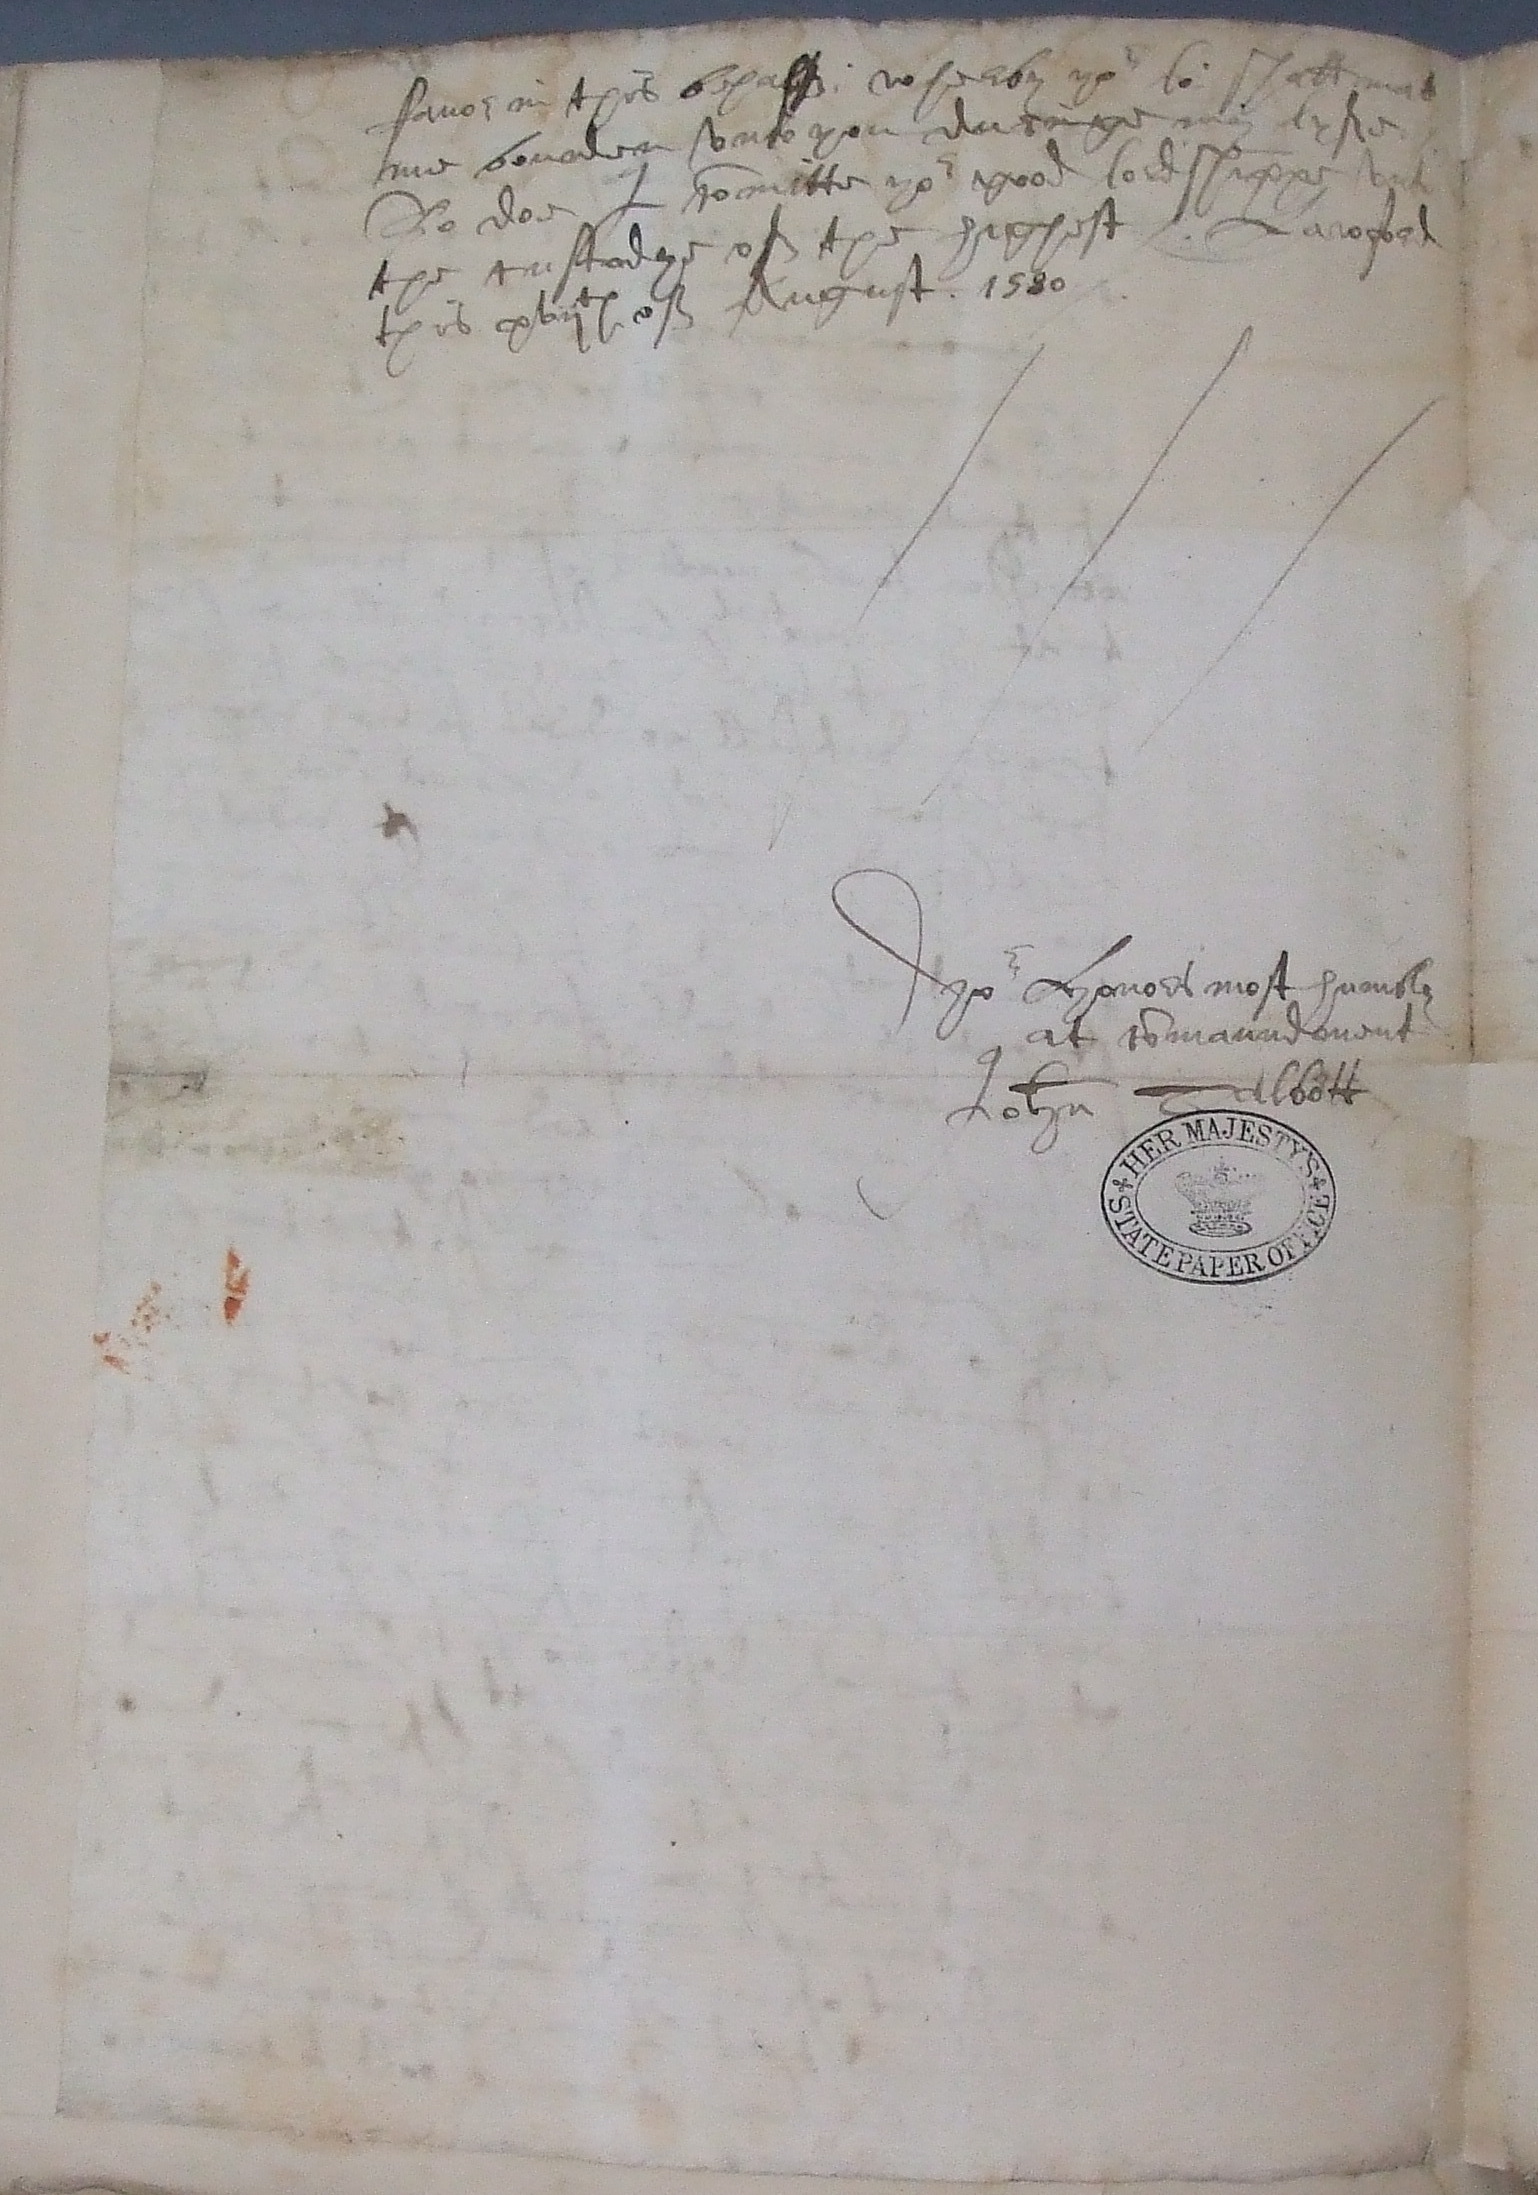 favor in this behalf: whereby yor lo: shall
me bounden unto you duringe my lyfe
So doe I comitte yor good lordshippe
the custodye off the highest
this xviijth off August. 1580
yor Honors most humbly
at comaundement
John Talbott
HER MAJESTY'S STATE PAPER OFFICE